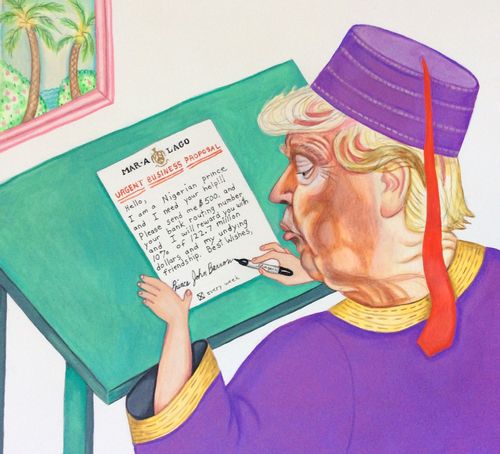 MAR-A LAGO
URGENT BUSINESS PROPOSAL
Hello,
I am a Nigerian prince
and I need your help!!!
Please send me $500. and
your bank routing number
and I will reward you with
10% of 122.7 million
dollars and my undying
friendship. Best Wishes,
Prince John Barron
every week